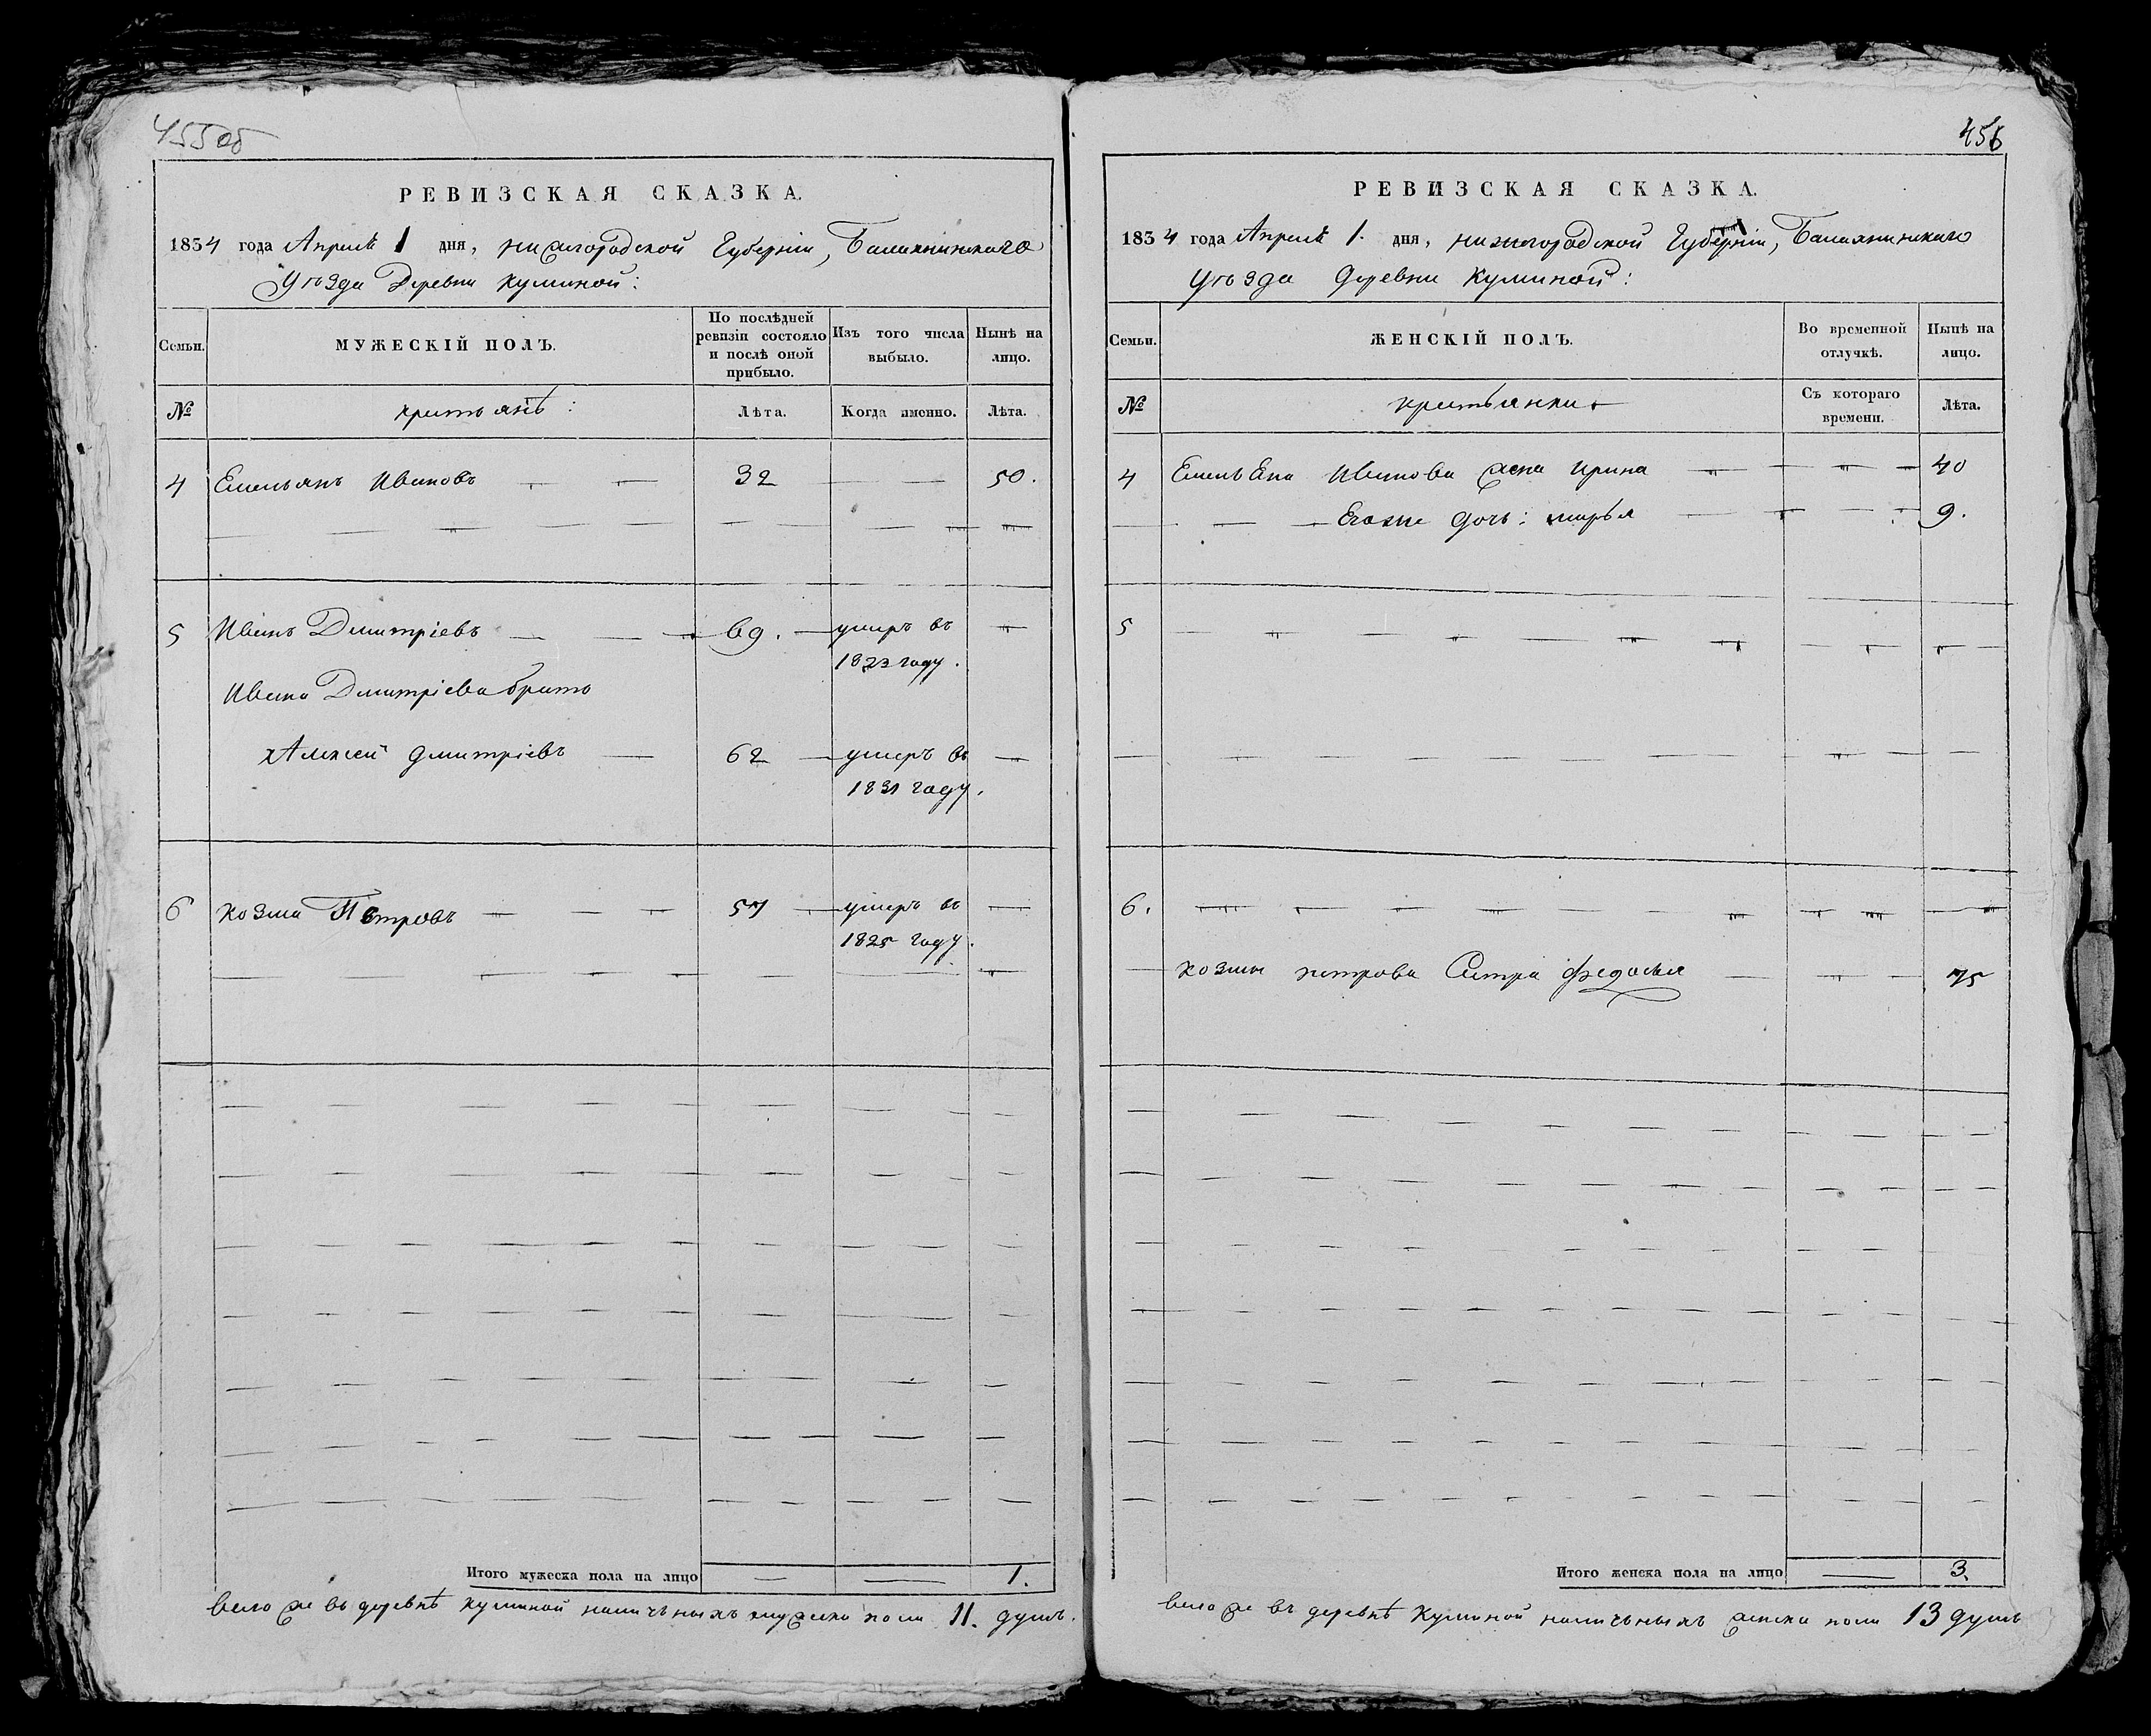 455об
РЕВИЗСКАЯ СКАЗКА.
1834 года Апреля 1 дня, нижегородской Губерніи, Балахнинскаго
Уѣзда Деревни Куминой:
Семьи.
МУЖЕСКІЙ ПОЛЪ.
По послѣдней ревизіи состояло и послѣ оной прибыло.
Изъ того числа выбыло.
Нынѣ на лицо.
№
крестьянъ:
Лѣта.
Когда именно.
Лѣта.
4 Емельянъ Ивановъ 32 50.
5 Иванъ Дмитріевъ 69. умеръ въ
1823 году.
Ивана Дмитріева братъ
Алексей Дмитріевъ 62 умеръ въ
1831 году.
6 козма Петровъ 57 умеръ въ
1825 году.
Итого мужеска пола на лицо 1.
Всего же въ деревнѣ куминой наличныхъ мужеска пола 11. душъ.
456
РЕВИЗСКАЯ СКАЗКА.
1834 года Апреля 1. дня, нижегородской Губерніи, Балахнинскаго
Уѣзда деревни Куминой:
Семьи.
ЖЕНСКІЙ ПОЛЪ.
Во временной отлучкѣ.
Нынѣ на лицо.
№
крестьянки
Съ котораго времени.
Лѣта.
4 Емельяна Иванова жена Ирина 40
Егоже дочь: марья 9.
5
6.
козмы петрова Сестра федосья 75
Итого женска пола на лицо 3.
Всего же въ деревнѣ Куминой наличныхъ женска пола 13 душъ